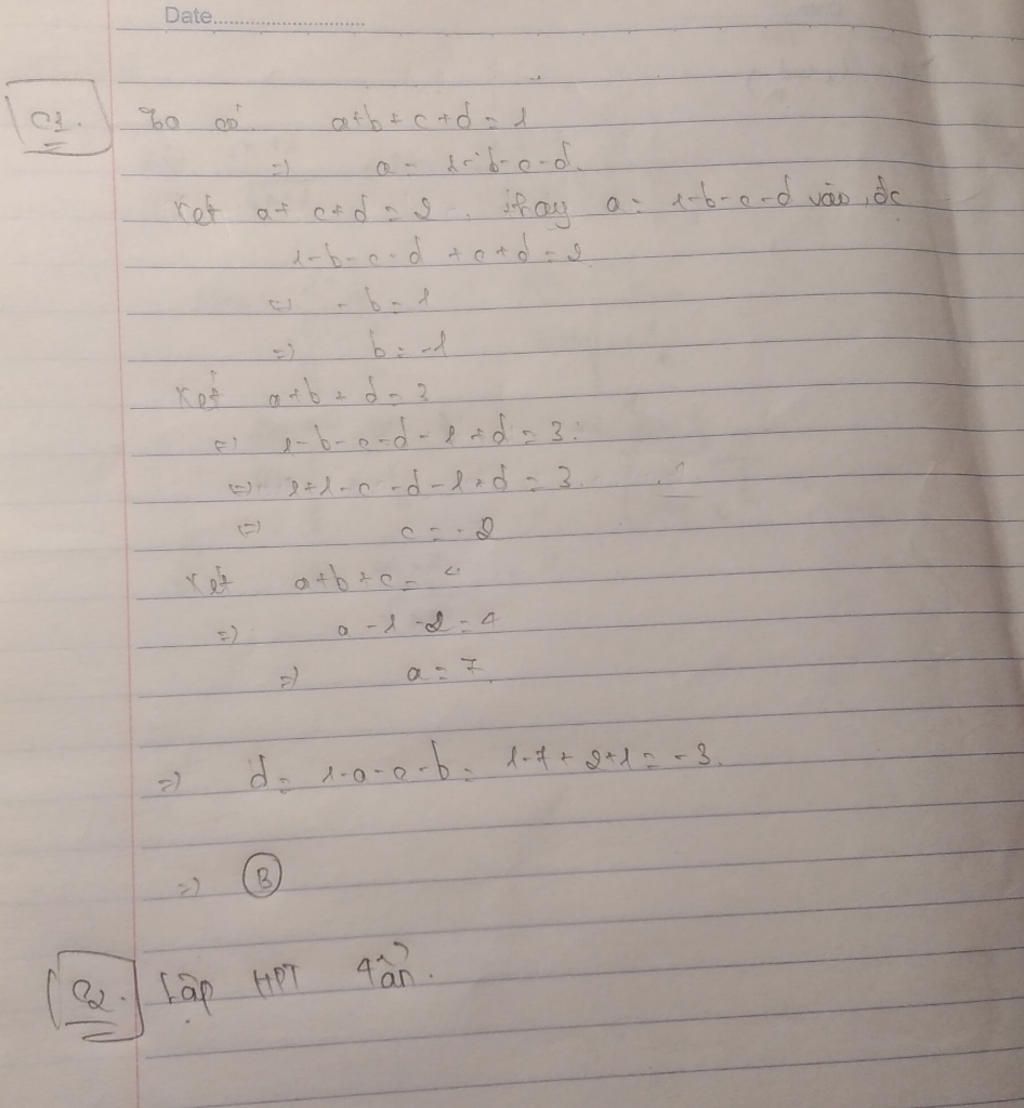 Date
C1. Ta có: a+b+c+d=1
=) a=1-b-c-d.
Xét a+c+d=2, thay a=1-b-c-d vào, đc
1-b-c-d+c+d=2
<=> -b=1
=) b=-1
Xét a+b+d=3
<=> 1-b-c-d-1+d=3.
<=> 1+1-c-d-1+d=3.
<=> c=-2
Xét a+b+c=4
=) a-1-2=4
=) a=7.
=) d=1-a-c-b=1-7+2+1=-3.
=) B
C2. Lập HPT 4 ẩn.